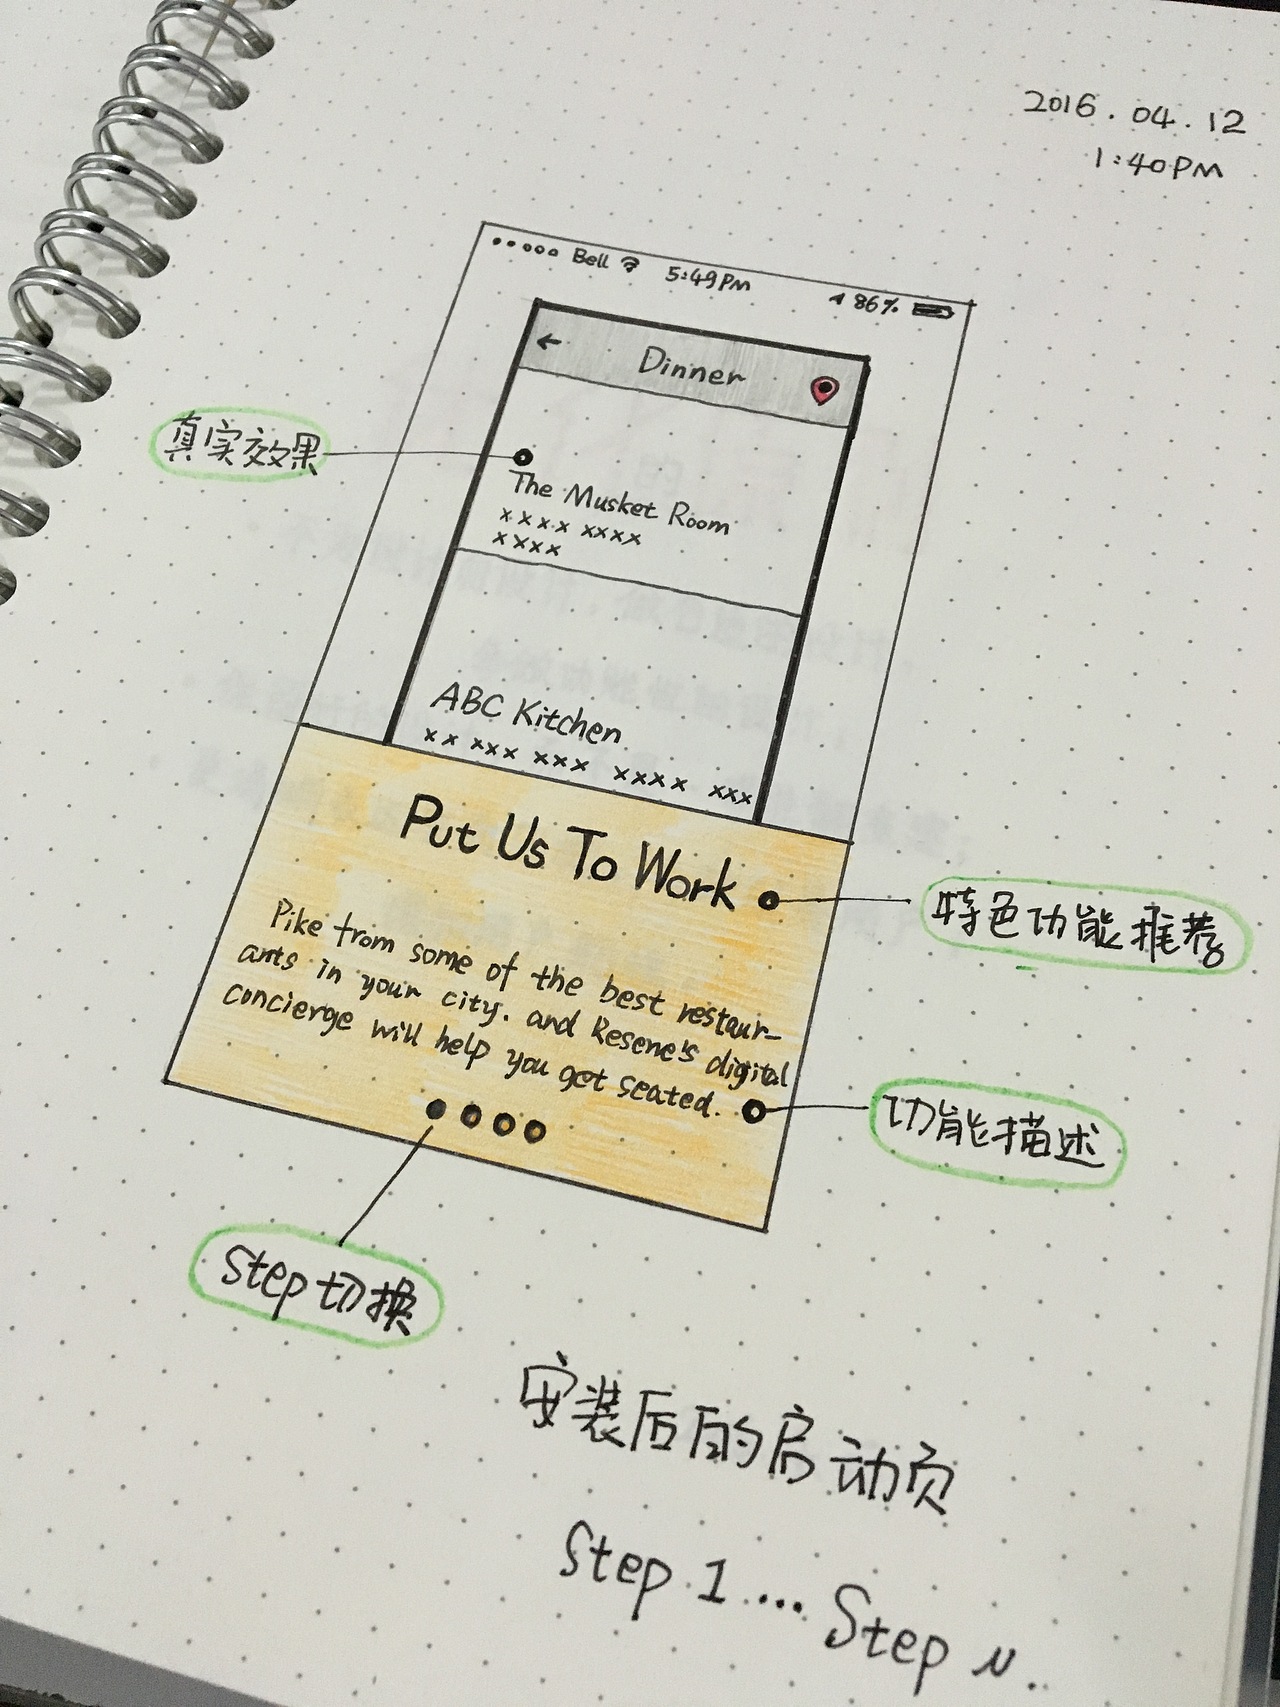 2016.04.12
1:40PM
Bell 5:49PM 86%
Dinner
真实效果
The Musket Room
xxxx xxxx
xxxx
ABC Kitchen
xx xxx xxx xxxx xxx
Put Us To Work
特色功能推荐
Pike from some of the best restaur-
ants in your city. and Resene's digital
concierge will help you get seated.
功能描述
Step切换
安装后的启动页
Step 1 ... Step N.